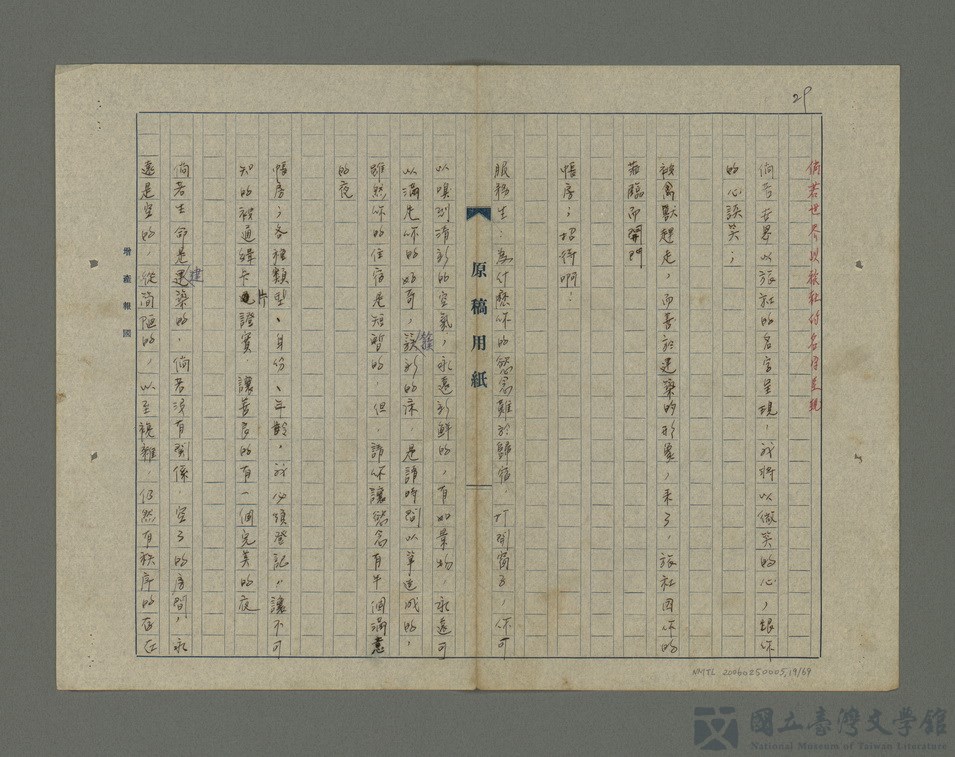 29
倘若世界以旅社的名字呈現
倘若世界以旅社的名字呈現，我將以微笑的心，跟你
的心談笑；
被禽獸趕走，而善於建築的形象，來了，旅社因你的
蒞臨而開門
帳房；招待啊：
服務生：為什麼你的慾念難於歸宿，打開窗子，你可
以嗅到清新的空氣，永遠新鮮的，有如景物，永遠可
以滿足你的好奇，簇新的床，是請時間以筆造成的，
雖然你的住宿是短暫的，但，請你讓慾念有半個滿意
的夜
帳房；各種類型、身份、年齡，我必須登記，讓不可
知的被通緝卡片證實，讓善良的有一個完美的夜
倘若生命是建築的，倘若沒有關係，空了的房間，永
遠是空的，從簡陋的，以至複雜，仍然有秩序的存在
原稿用紙
增產報國
NMTL 20060250005,19/69
國立臺灣文學館
National Museum of Taiwan Literature